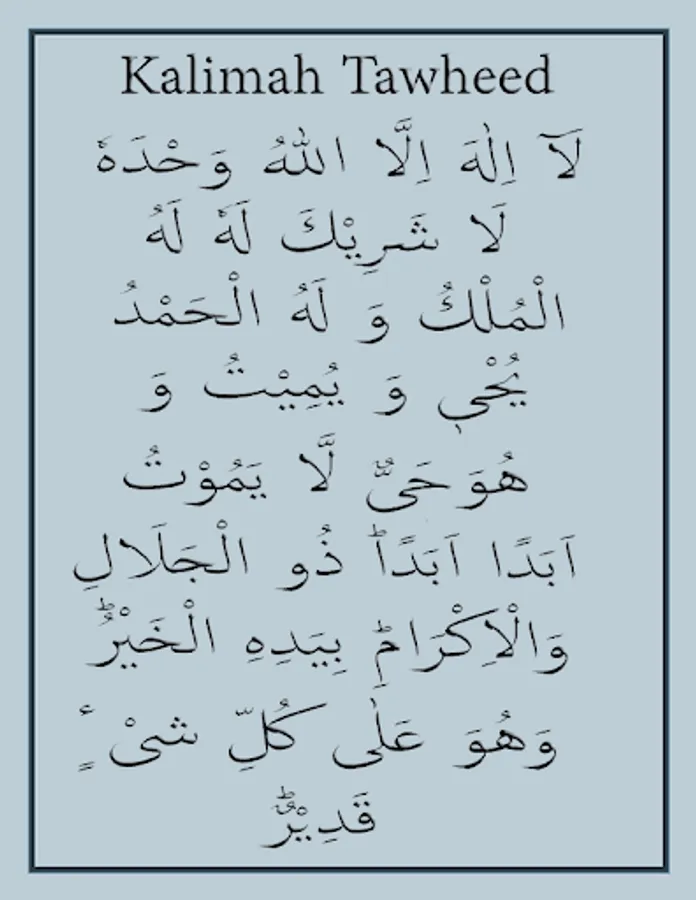 Kalimah Tawheed
لَآ اِلٰهَ اِلَّا اللهُ وَحْدَهٗ
لَا شَرِيْكَ لَهٗ لَهُ
الْمُلْكُ وَ لَهُ الْحَمْدُ
يُحْيٖ وَ يُمِيْتُ وَ
هُوَ حَىٌّ لَّا يَمُوْتُ
اَبَدًا اَبَدًاؕ ذُو الْجَلَالِ
وَالْاِكْرَامِؕ بِيَدِهِ الْخَيْرُؕ
وَهُوَ عَلٰى كُلِّ شىْ ٍٔ
قَدِيْرٌؕ